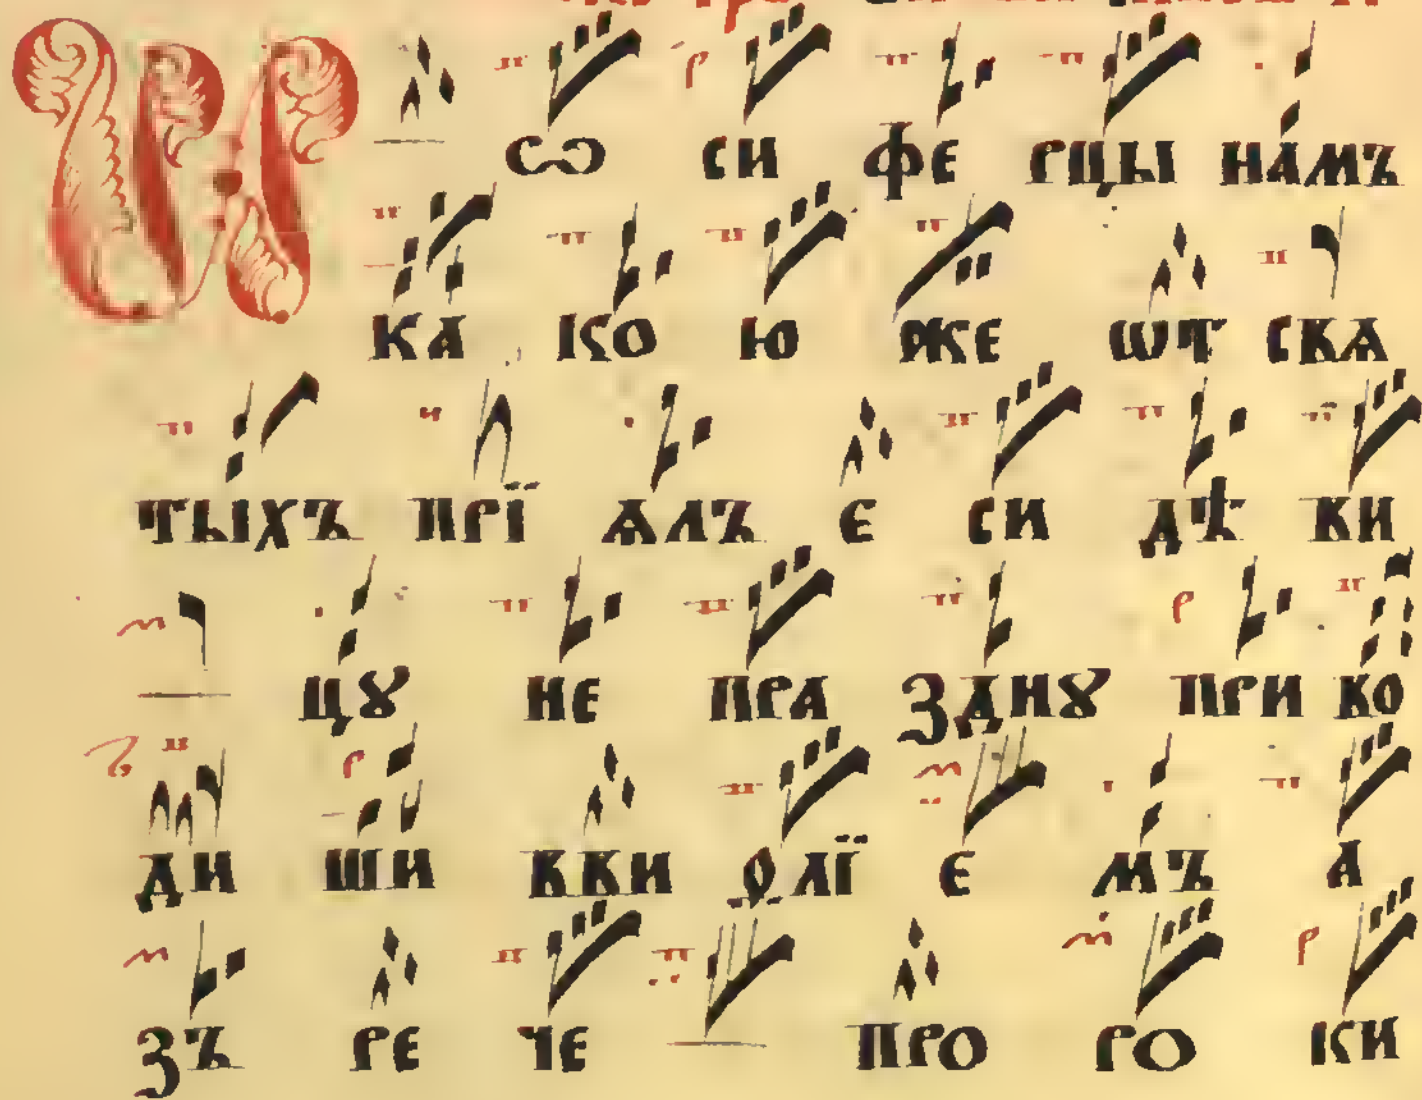 Ѡ сѡ си фе рцы на́мъ
ка ко ю же ѿт свѧ
тыхъ прї ѧлъ е си дѣ ви
цꙋ не пра здну при во
ди ши вви ѳлї е мъ а
зъ ре че про ро ки